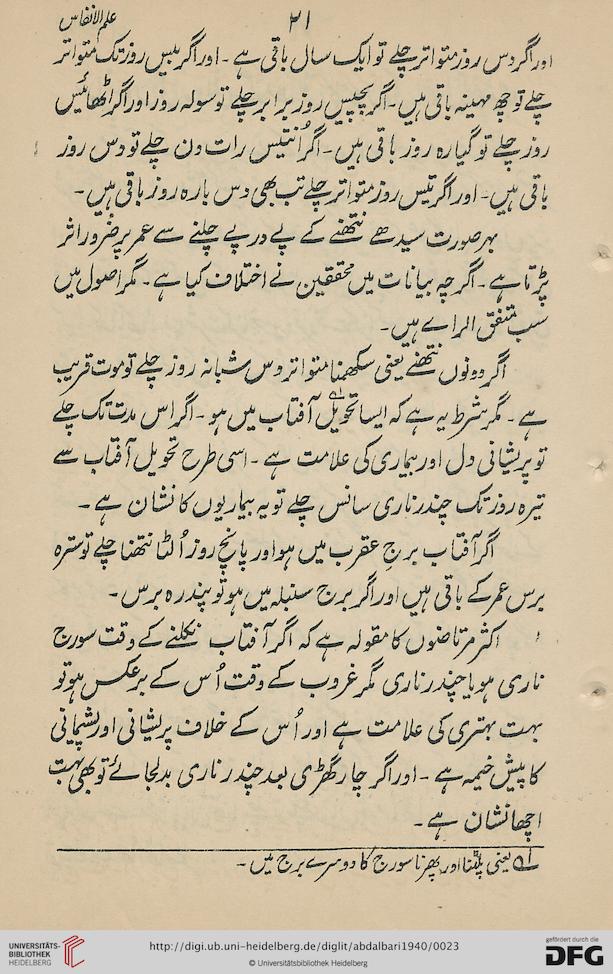 علم الانفاس
۲۱
اور اگر دس روز متواتر چلے تو ایک سال باقی ہے ۔ اور اگر بیس روز تک متواتر
چلے تو چھ مہینہ باقی ہیں ۔ اگر پچیس روز برابر چلے تو سولہ روز اور اگر اٹھائیس
روز چلے تو گیارہ روز باقی ہیں ۔ اگر اُنتیس رات دن چلے تو دس روز
باقی ہیں ۔ اور اگر تیس روز متواتر چلے تب بھی دس بارہ روز باقی ہیں ۔
بہر صورت سیدھے نتھنے کے پے در پے چلنے سے عمر پر ضرور اثر
پڑتا ہے ۔ اگرچہ بیانات میں محققین نے اختلاف کیا ہے ۔ مگر اصول میں
سب متفق الراے ہیں ۔
اگر دونوں نتھنے یعنی سکھمنا متواتر دس شبانہ روز چلے تو موت قریب
ہے ۔ مگر شرط یہ ہے کہ ایسا تحویل لہ آفتاب میں ہو ۔ اگر اس مدت تک چلے
تو پریشانی دل اور بیماری کی علامت ہے ۔ اسی طرح تحویل آفتاب سے
تیرہ روز تک چندر ناری سانس چلے تو یہ بیماریوں کا نشان ہے ۔
اگر آفتاب برج عقرب میں ہو اور پانچ روز اُلٹا نتھنا چلے تو سترہ
برس عمر کے باقی ہیں اور اگر برج سنبلہ میں ہو تو پندرہ برس ۔
اکثر مرتاضوں کا مقولہ ہے کہ اگر آفتاب نکلنے کے وقت سورج
ناری ہو یا چندر ناری مگر غروب کے وقت اُس کے برعکس ہو تو
بہت بہتری کی علامت ہے اور اُس کے خلاف پریشانی اور پشیمانی
کا پیش خیمہ ہے ۔ اور اگر چار گھڑی بعد چندر ناری بدل جائے تو بھی بہت
اچھا نشان ہے ۔
لہ یعنی پلٹنا اور پھرنا سورج کا دوسرے برج میں ۔
UNIVERSITÄTS-
BIBLIOTHEK
HEIDELBERG
http://digi.ub.uni-heidelberg.de/diglit/abdalbari1940/0023
© Universitätsbibliothek Heidelberg
gefördert durch die
DFG